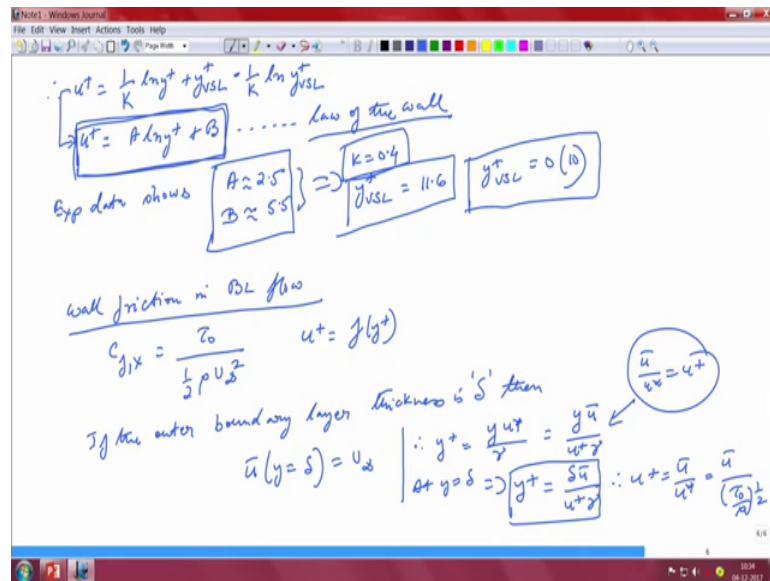 Note1 - Windows Journal
File Edit View Insert Actions Tools Help
Page Width
∴ u⁺ = 1/K ln y⁺ + y⁺_VSL - 1/K ln y⁺_VSL
u⁺ = A ln y⁺ + B ...... law of the wall
Exp data shows A ≈ 2.5 B ≈ 5.5 } => K = 0.4 y⁺_VSL = 11.6 y⁺_VSL = O(10)
Wall friction in BL flow
C_f,x = τ₀ / (1/2 ρ U∞²) u⁺ = f(y⁺)
ū/u* = u⁺
If the outer boundary layer thickness is 'δ' then
ū(y=δ) = U∞
∴ y⁺ = y u*/ν = y ū/(u⁺ ν)
At y=δ => y⁺ = δū/(u⁺ ν) ∴ u⁺ = ū/u* = ū/(τ₀/ρ)^1/2
6/6
6
10:34
04-12-2017